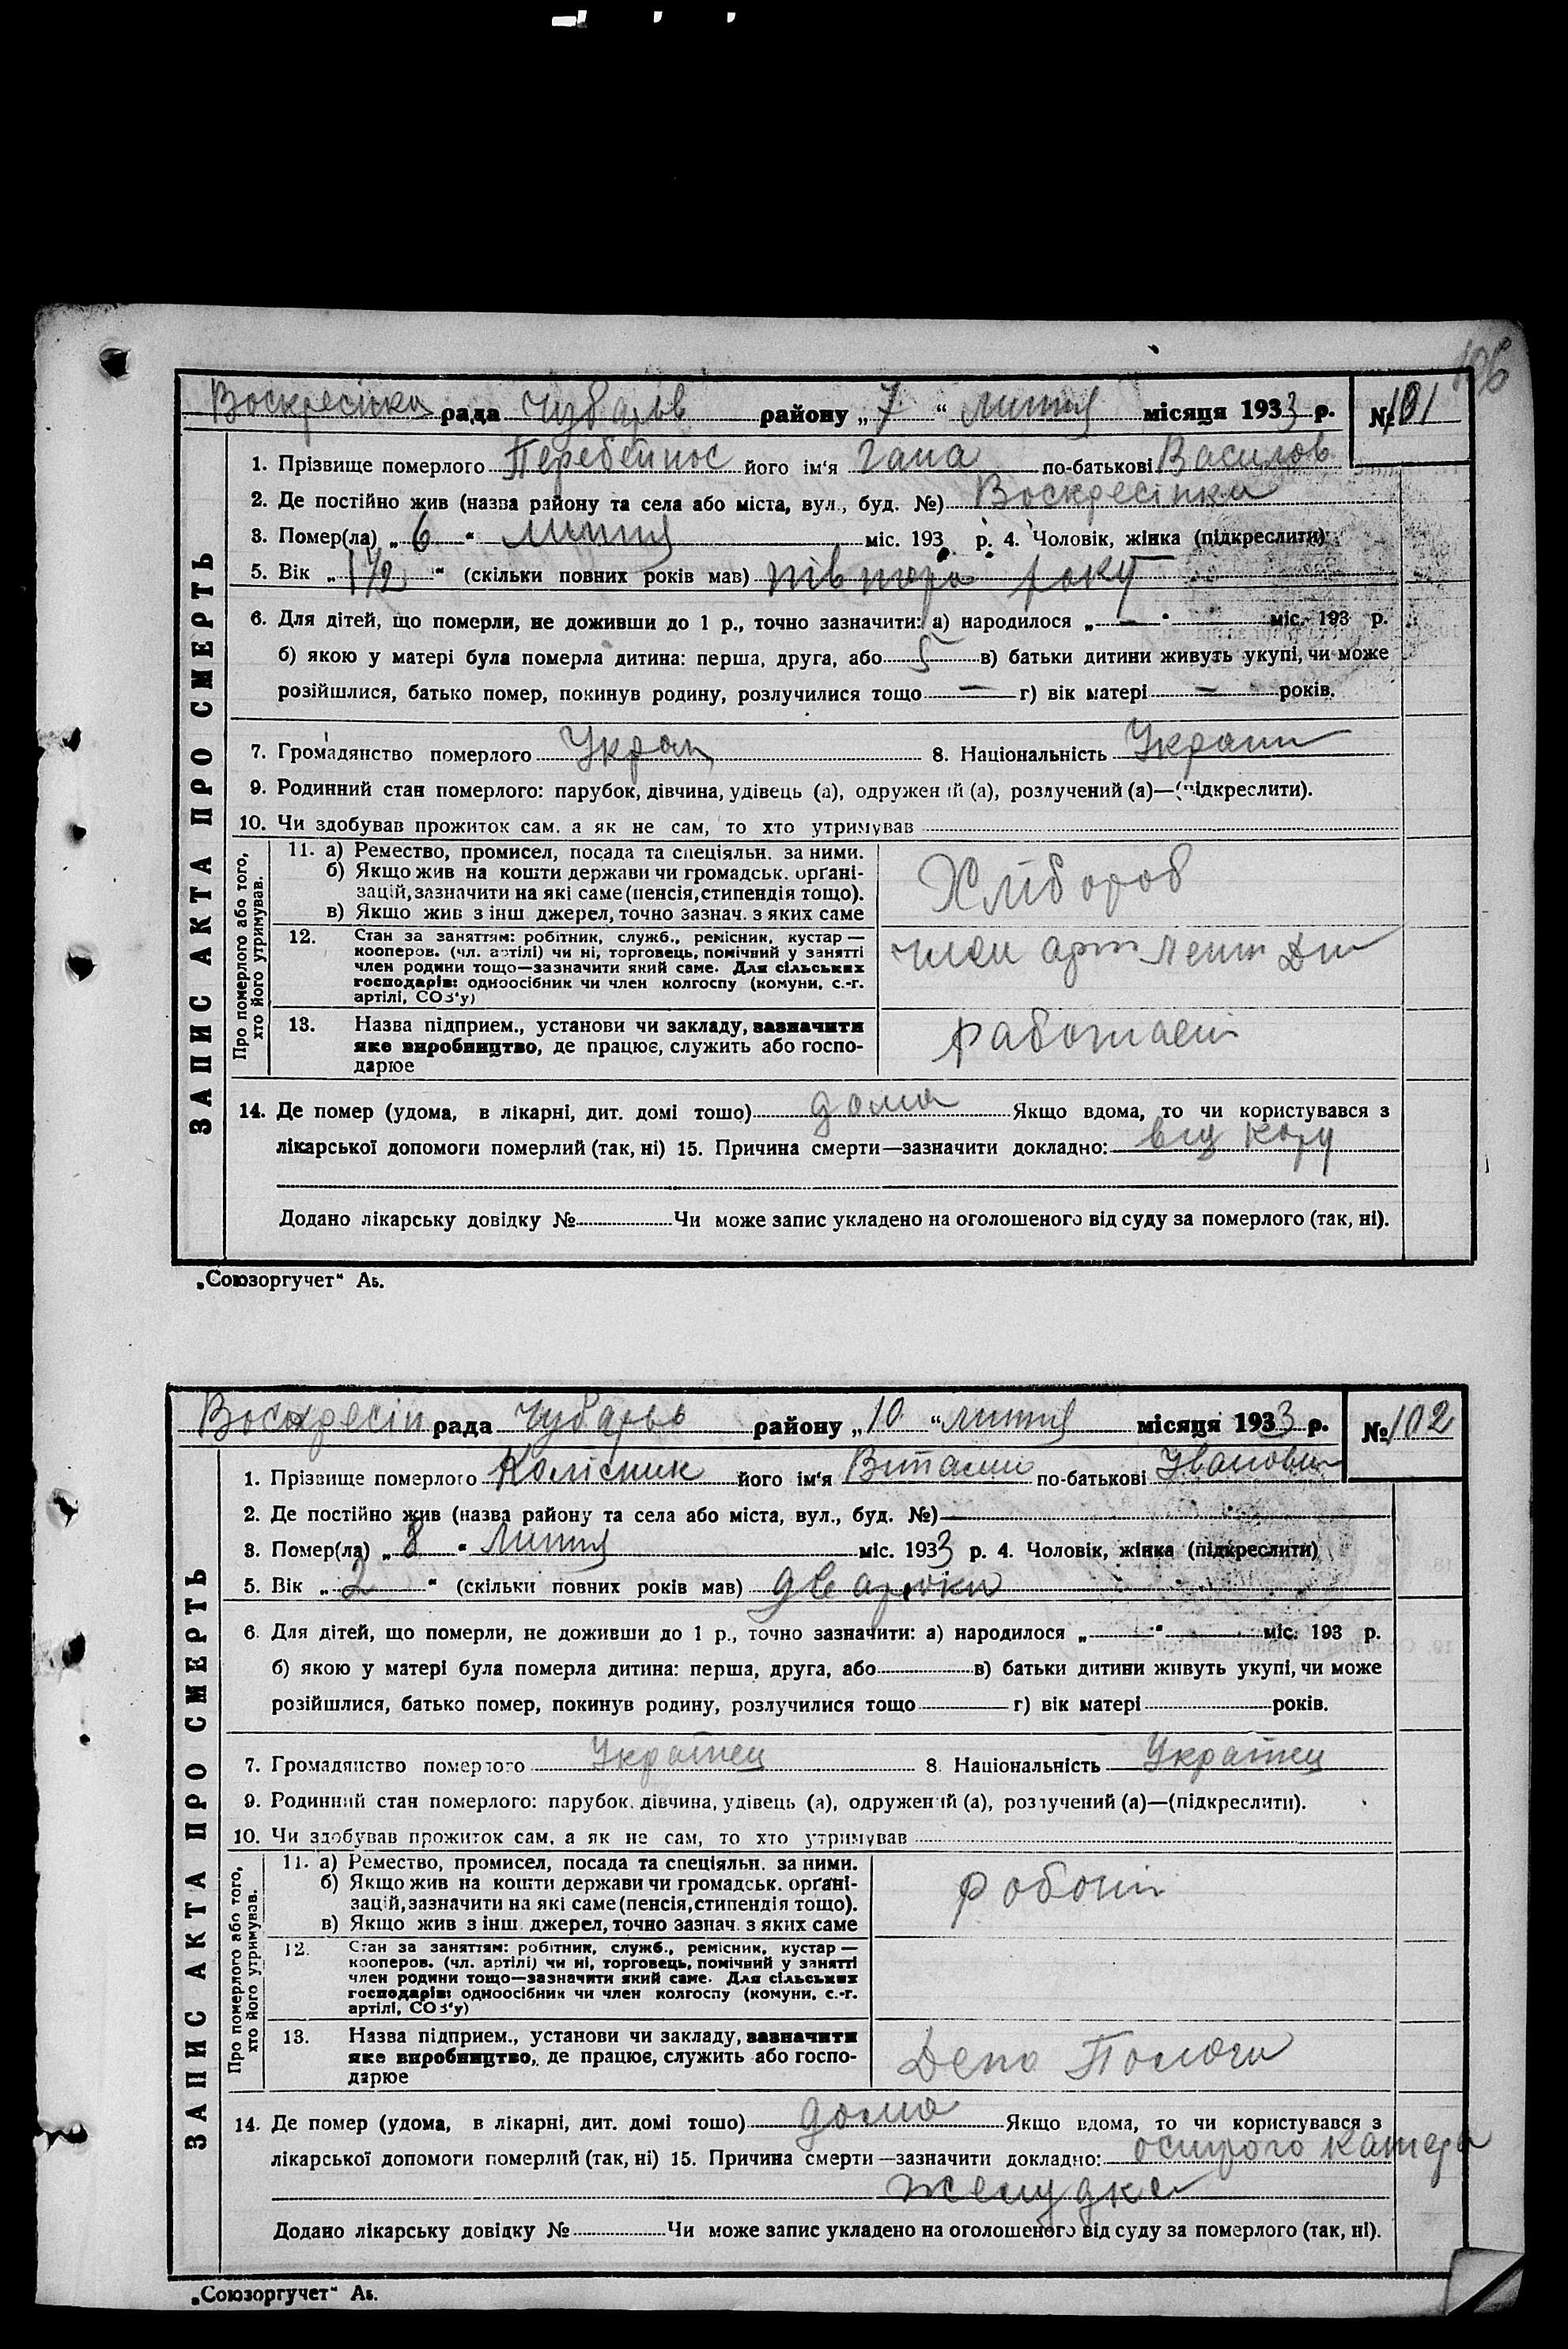 106
Воскресінка рада Чубарьв району „7“ липня місяця 1933 р. № 101
1. Прізвище померлого Перебейнос його ім'я Гана по-батькові Василов
2. Де постійно жив (назва району та села або міста, вул., буд. №) Воскресінка
3. Помер(ла) „6“ липня міс. 193 р. 4. Чоловік, жінка (підкреслити)
5. Вік „1 1/2“ (скільки повних років мав) півтора року
6. Для дітей, що померли, не доживши до 1 р., точно зазначити: а) народилося „—“ міс. 193 р.
б) якою у матері була померла дитина: перша, друга, або 5 в) батьки дитини живуть укупі, чи може
розійшлися, батько помер, покинув родину, розлучилися тощо — г) вік матері — років.
7. Громадянство померлого Украп 8. Національність Украин
9. Родинний стан померлого: парубок, дівчина, удівець (а), одружений (а), розлучений (а)—(підкреслити).
10. Чи здобував прожиток сам, а як не сам, то хто утримував
ЗАПИС АКТА ПРО СМЕРТЬ
Про померлого або того, хто його утримував.
11. а) Ремество, промисел, посада та спеціяльн. за ними.
б) Якщо жив на кошти держави чи громадськ. орґані-
зацій, зазначити на які саме (пенсія, стипендія тощо).
в) Якщо жив з інш джерел, точно зазнач. з яких саме
Хлібороб
12. Стан за заняттям: робітник, служб., ремісник, кустар —
кооперов. (чл. артілі) чи ні, торговець, помічний у занятті
член родини тощо—зазначити який саме. Для сільських
господарів: одноосібник чи член колгоспу (комуни, с.-г.
артілі, СОЗ'у)
член арт
13. Назва підприєм., установи чи закладу, зазначити
яке виробництво, де працює, служить або госпо-
дарює
работаеть
14. Де помер (удома, в лікарні, дит. домі тошо) дома Якщо вдома, то чи користувався з
лікарської допомоги померлий (так, ні) 15. Причина смерти—зазначити докладно: від кору
Додано лікарську довідку № Чи може запис укладено на оголошеного від суду за померлого (так, ні).
„Союзоргучет“ Аь.
Воскресін рада Чубарьв району „10“ липня місяця 1933 р. № 102
1. Прізвище померлого Колісник його ім'я Віталий по-батькові Иванович
2. Де постійно жив (назва району та села або міста, вул., буд. №)
3. Помер(ла) „8“ Липня міс. 1933 р. 4. Чоловік, жінка (підкреслити)
5. Вік „2“ (скільки повних років мав) два роки
6. Для дітей, що померли, не доживши до 1 р., точно зазначити: а) народилося „ “ міс. 193 р.
б) якою у матері була померла дитина: перша, друга, або в) батьки дитини живуть укупі, чи може
розійшлися, батько помер, покинув родину, розлучилися тощо г) вік матері років.
7. Громадянство померлого Українец 8. Національність Українец
9. Родинний стан померлого: парубок, дівчина, удівець (а), одружений (а), розлучений (а)—(підкреслити).
10. Чи здобував прожиток сам, а як не сам, то хто утримував
ЗАПИС АКТА ПРО СМЕРТЬ
Про померлого або того, хто його утримував.
11. а) Ремество, промисел, посада та спеціяльн. за ними.
б) Якщо жив на кошти держави чи громадськ. орґані-
зацій, зазначити на які саме (пенсія, стипендія тощо).
в) Якщо жив з інш. джерел, точно зазнач. з яких саме
роботи
12. Стан за заняттям: робітник, служб., ремісник, кустар —
кооперов. (чл. артілі) чи ні, торговець, помічний у занятті
член родини тощо—зазначити який саме. Для сільських
господарів: одноосібник чи член колгоспу (комуни, с.-г.
артілі, СОЗ'у)
13. Назва підприєм., установи чи закладу, зазначити
яке виробництво, де працює, служить або госпо-
дарює
Депо Пологи
14. Де помер (удома, в лікарні, дит. домі тошо) дома Якщо вдома, то чи користувався з
лікарської допомоги померлий (так, ні) 15. Причина смерти—зазначити докладно: острого катера
желудка
Додано лікарську довідку № Чи може запис укладено на оголошеного від суду за померлого (так, ні).
„Союзоргучет“ Аь.